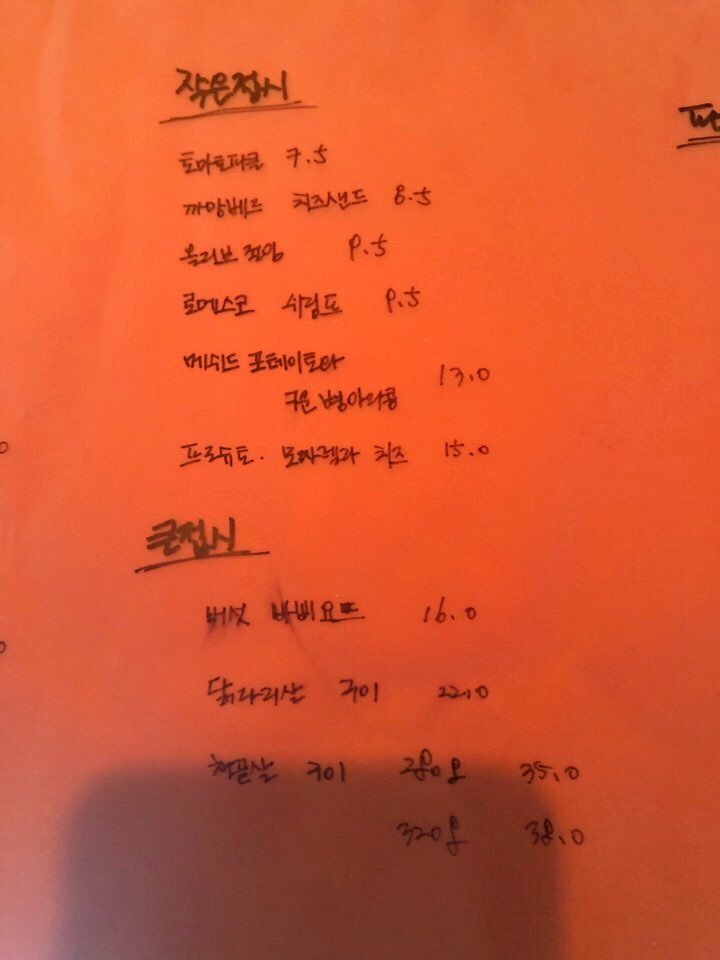 작은접시
토마토피클 7.5
까망베르 치즈샌드 8.5
올리브 절임 9.5
로메스코 쉬림프 9.5
메쉬드 포테이토와
구운 병아리콩 13.0
프로슈토. 모짜렐라 치즈 15.0
큰접시
버섯 바베요뜨 16.0
닭다리살 구이 22.0
구이 280g 35.0
320g 38.0